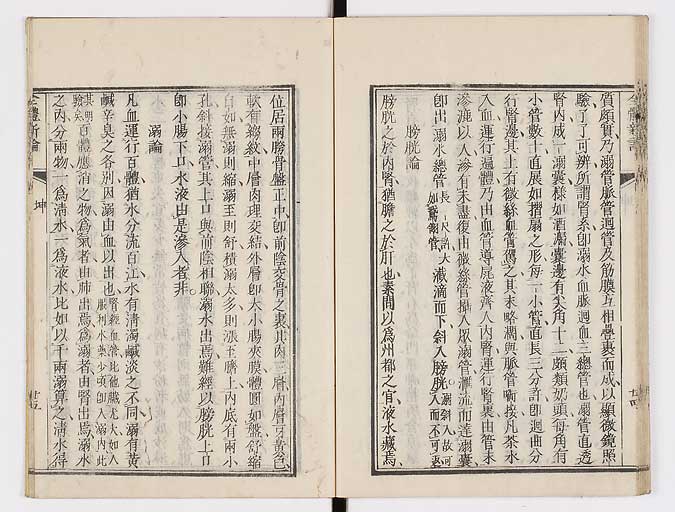 質頗實乃溺管脈管迴管及筋膜互相疊裹而成以顯微鏡照
驗了了可辨所謂腎系即溺水血脈迴血三總管也溺管直透
腎內成一溺囊樣如酒漏囊邊有尖角十二頗類奶頭每角有
小管數十直展如摺扇之形每一小管直長三分許即迴曲分
行腎邊其上有微絲血管駕之其末略闊與脈管啣接凡茶水
入血運行遍體乃由血管導尾液齊入內腎運行腎裏由管末
滲漉以入滲有未盡復由微絲管攝入眾溺管漸流而達溺囊
即出溺水總管長一尺許大如鵞翎管瀐滴而下斜入膀胱溺斜入故可入而不可返
膀胱論
膀胱之於內腎猶膽之於肝也素問以為州都之官液水藏焉
位居兩膀骨盤正中即前陰交骨之裏其肉三層內層牙黃色
軟有縐紋中層肉理交結外層即大小腸夾膜體圓如盤舒縮
自如無溺則縮溺至則舒積溺太多則漲至臍上內底有兩小
孔斜接溺管其上口與前陰相聯溺水出焉難經以膀胱上口
即小腸下口水液由是滲入者非
溺論
凡血運行百體猶水分流百江水有清濁鹹淡之不同溺有黃
鹹辛臭之各別因溺由血以出也腎經血管比他臟尤大如人服利水藥少頃即入溺內此
其明驗矣百體應消之物為氣者由肺出焉為溺者由腎出焉溺水
之內分兩物一為清水一為液水比如以千兩溺算之清水得
全體新論
坤
廿五
廿四